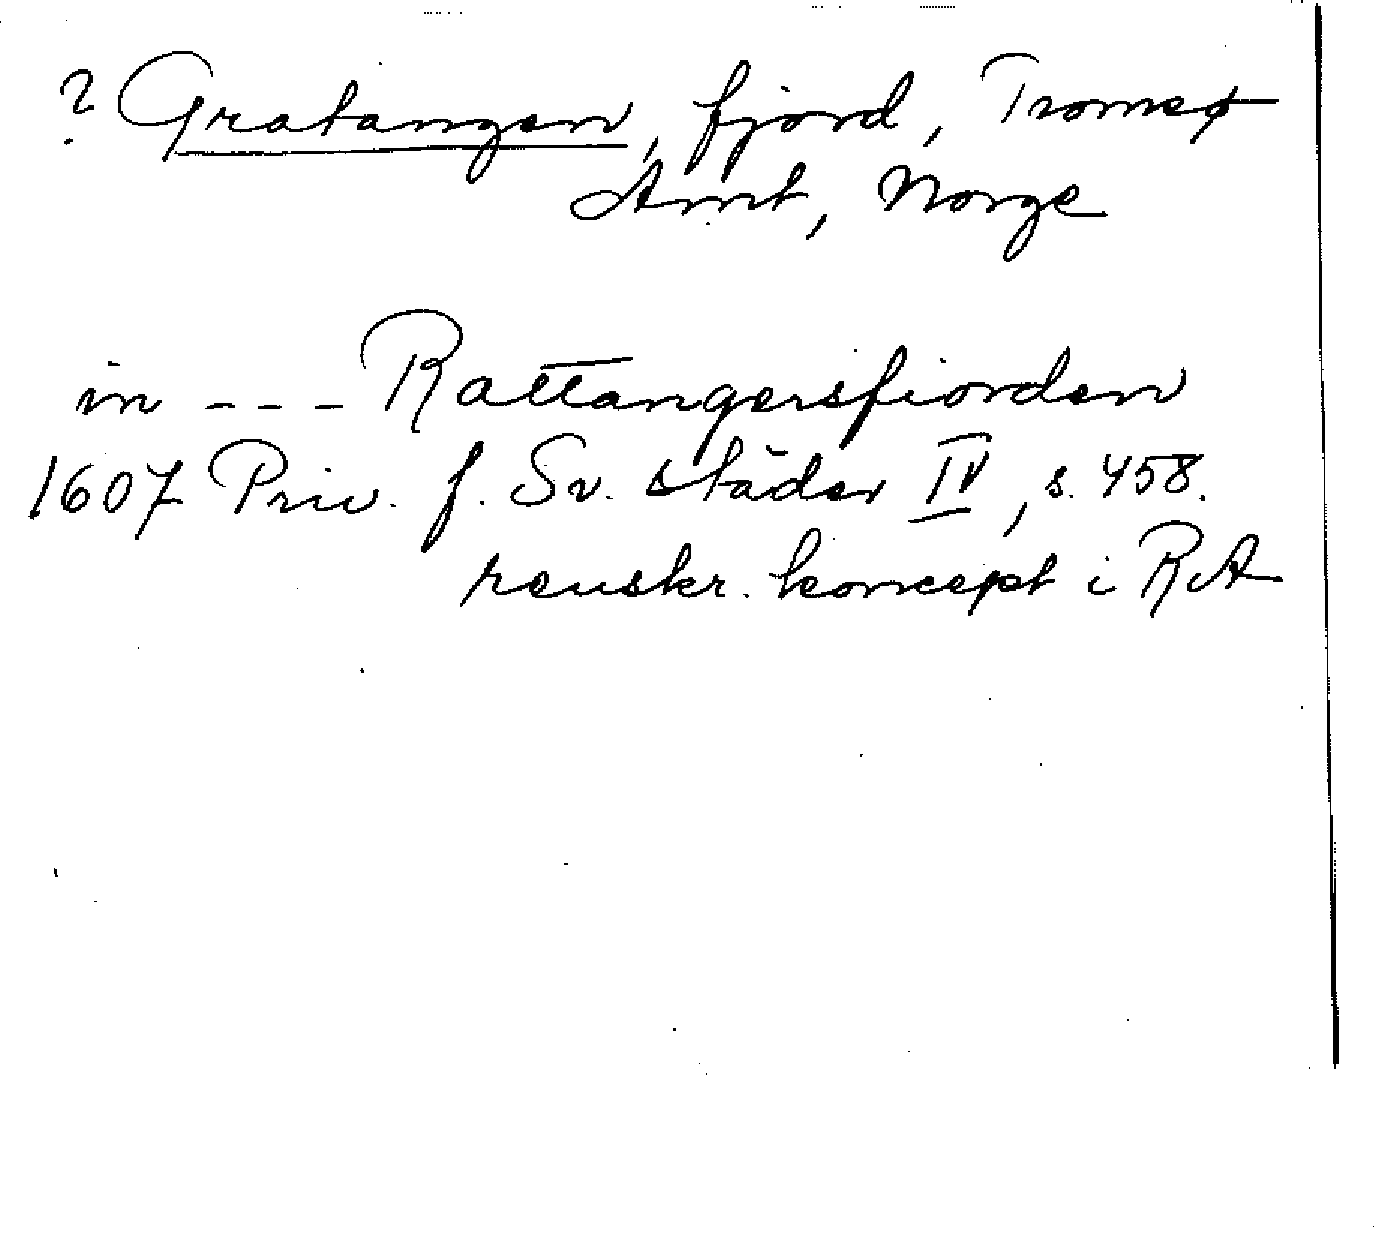 ? Gratangen, fjord, Tromsø
Amt, Norge
in --- Rattangersfiorden
1607 Priv. f. Sv. städer IV, s. 458.
renskr. koncept i RA